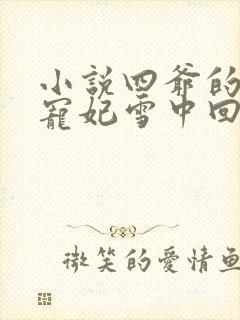 小說四爺的
寵妃雪中回
微笑的愛情魚